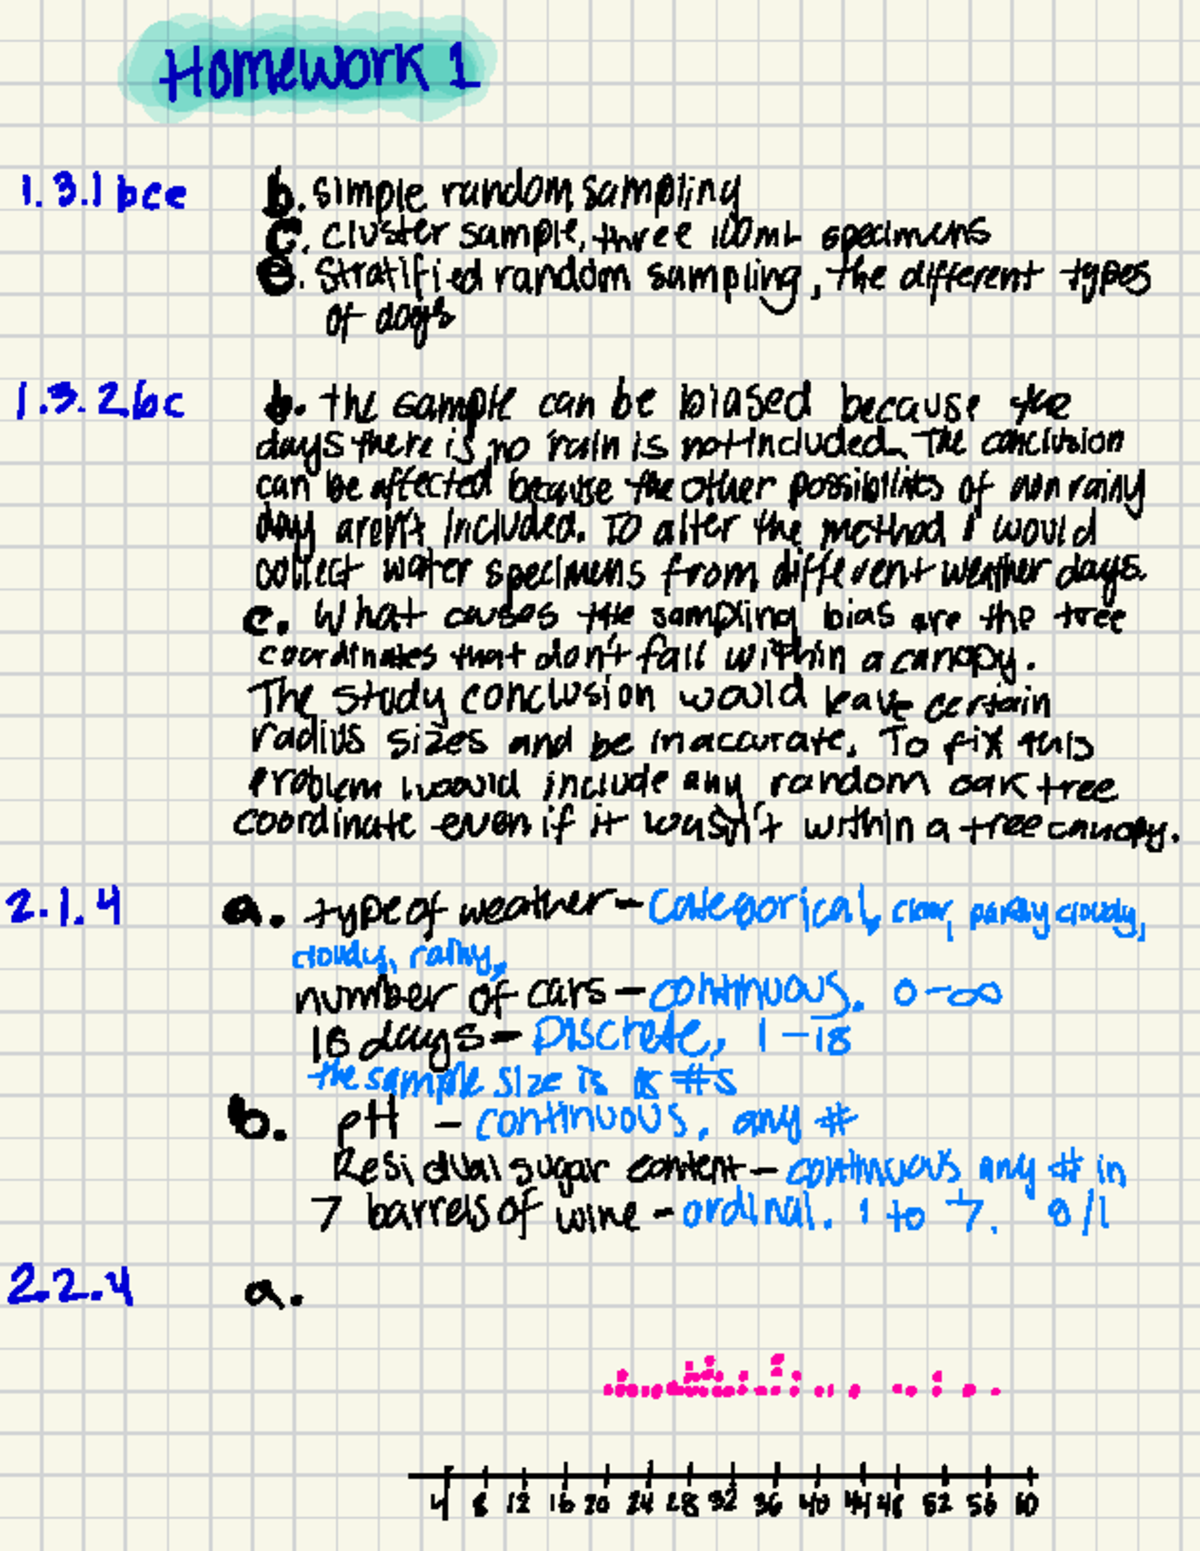 Homework 1
1.3.1 bce b. simple random sampling
c. cluster sample, three 100mL specimens
e. Stratified random sampling, the different types
of days
1.3.2bc b. the sample can be biased because the
days there is no rain is not included. The conclusion
can be affected because the other possibilities of non rainy
day aren't included. To alter the method I would
collect water specimens from different weather days.
c. What causes the sampling bias are the tree
coordinates that don't fall within a canopy.
The study conclusion would leave certain
radius sizes and be inaccurate. To fix this
problem I would include any random oak tree
coordinate even if it wasn't within a tree canopy.
2.1.4 a. type of weather - categorical, clear, partly cloudy,
cloudy, rainy,
number of cars - continuous. 0-∞
18 days - Discrete, 1-18
the sample size is 18 #s
b. pH - continuous, any #
Residual sugar content - continuous any # in
7 barrels of wine - ordinal. 1 to 7. g/l
2.2.4 a.
4 8 12 16 20 24 28 32 36 40 44 48 52 56 60